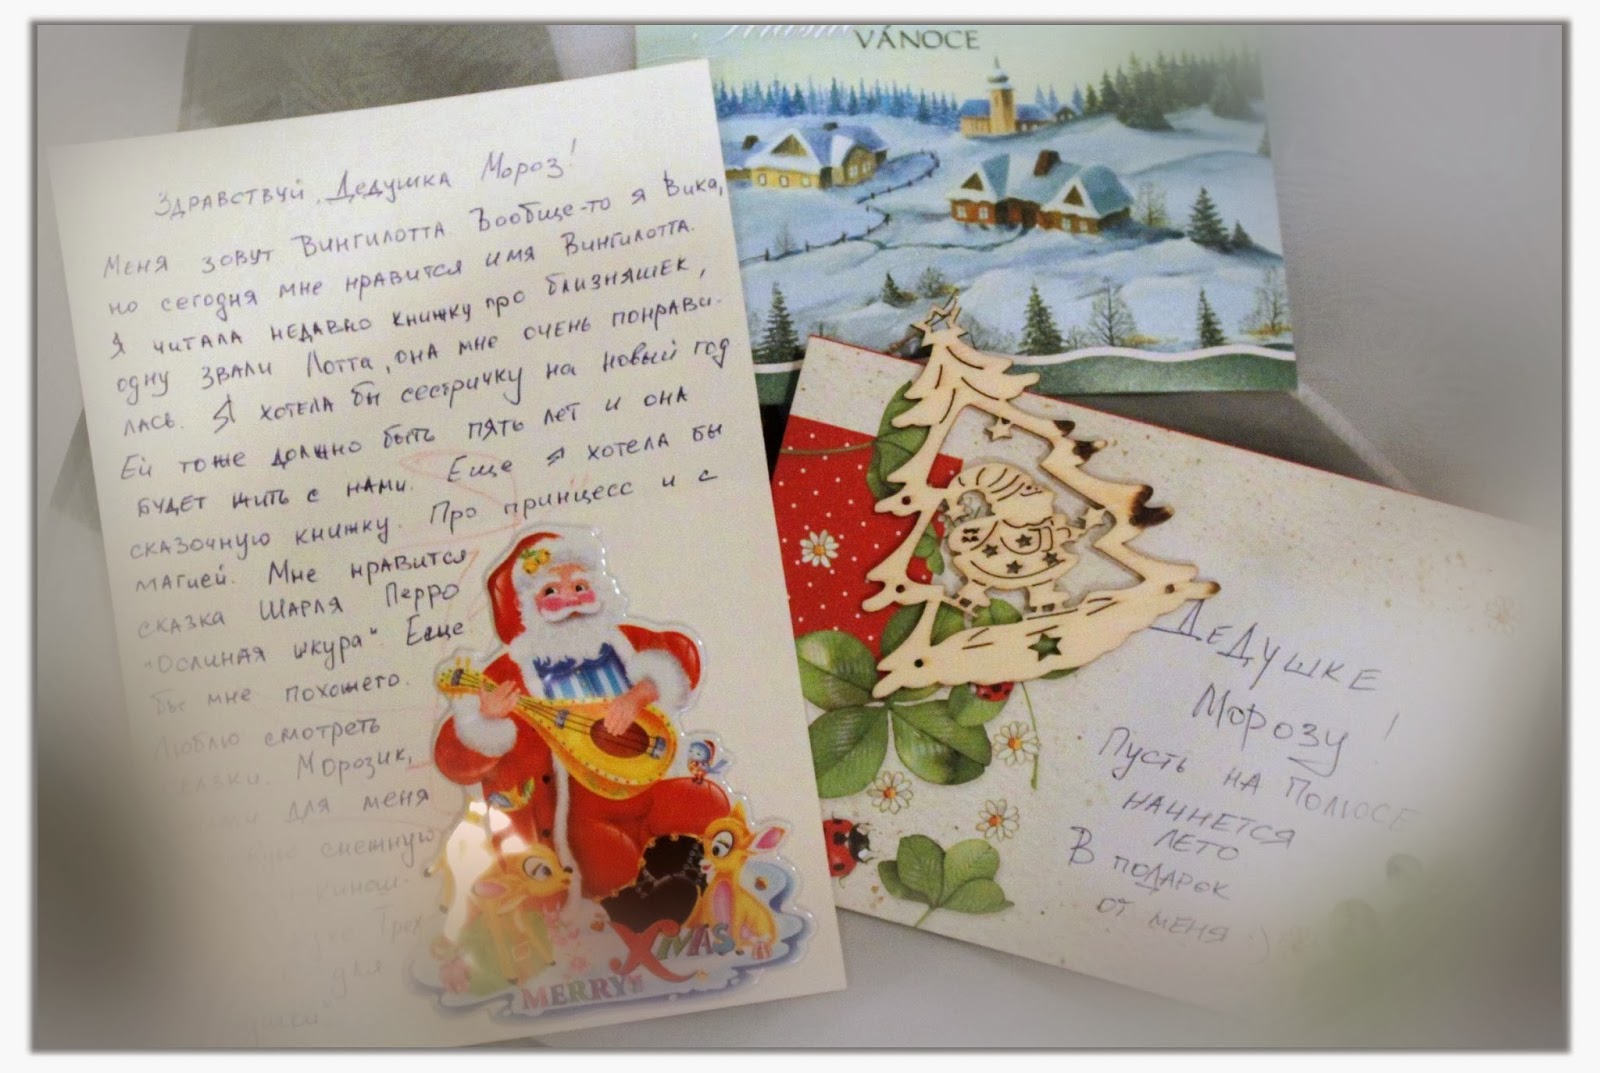 Здравствуй, Дедушка Мороз!
Меня зовут Вингилотта. Вообще-то я Вика,
но сегодня мне нравится имя Вингилотта.
Я читала недавно книжку про близняшек,
одну звали Лотта, она мне очень понрави-
лась. Я хотела бы сестричку на новый год
Ей тоже должно быть пять лет и она
будет жить с нами. Еще я хотела бы
сказочную книжку. Про принцесс и с
магией. Мне нравится
сказка Шарля Перро
"Ослиная шкура" Еще
бы мне похожего.
Люблю смотреть
сказки. Морозик,
для меня
снежную
Трех
для
MERRY XMAS
VÁNOCE
Дедушке
Морозу!
Пусть на Полюсе
начнется
лето
В подарок
от меня :)